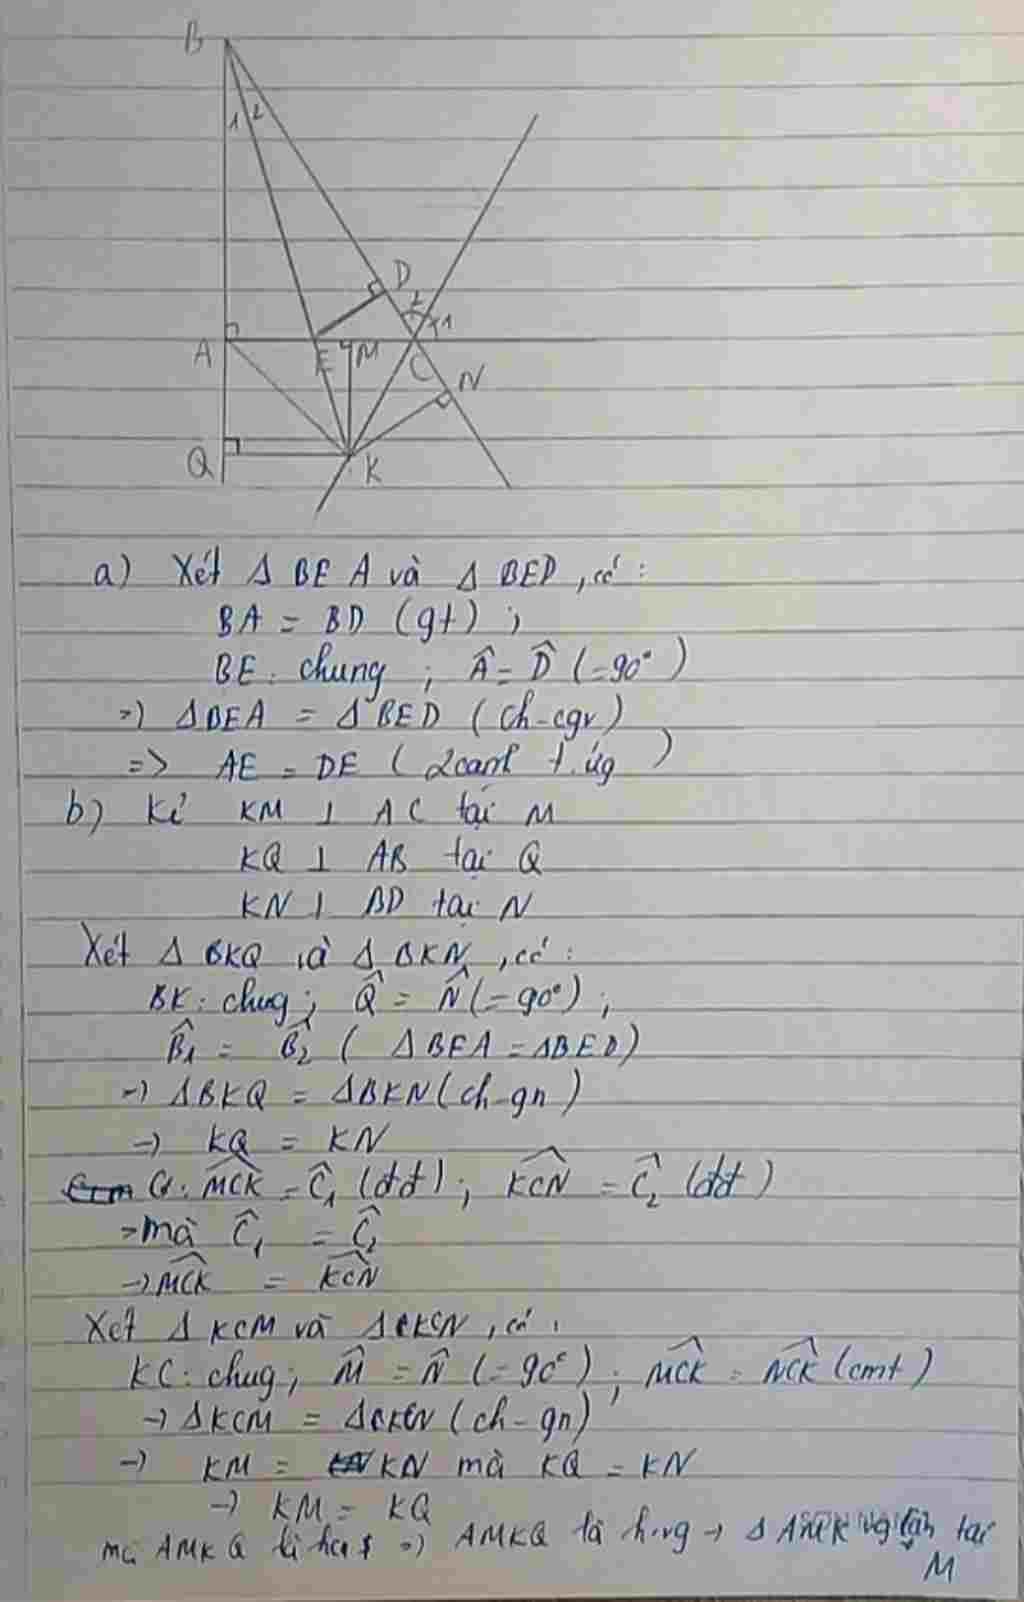 B
1 2
D
2 1
A E M C N
Q K
a) Xét Δ BEA và Δ BED, có:
BA = BD (gt);
BE: chung; Â = D̂ (=90°)
=) ΔBEA = ΔBED (ch-cgv)
=> AE = DE (2 cạnh t.ứg)
b) Kẻ KM ⊥ AC tại M
KQ ⊥ AB tại Q
KN ⊥ BD tại N
Xét Δ BKQ và Δ BKN, có:
BK: chug; Q̂ = N̂ (=90°);
B̂₁ = B̂₂ (ΔBEA = ΔBED)
-) ΔBKQ = ΔBKN (ch-gn)
-) KQ = KN
MCK̂ = Ĉ₁ (đđ); KCN̂ = Ĉ₂ (đđ)
mà Ĉ₁ = Ĉ₂
-) MCK̂ = KCN̂
Xét Δ KCM và ΔKCN, có:
KC: chug; M̂ = N̂ (=90°); MCK̂ = NCK̂ (cmt)
-) ΔKCM = ΔKCN (ch-gn)
-) KM = KN mà KQ = KN
-) KM = KQ
mà AMKQ là hcn =) AMKQ là h.vg -) Δ AMK vg cân tại
M